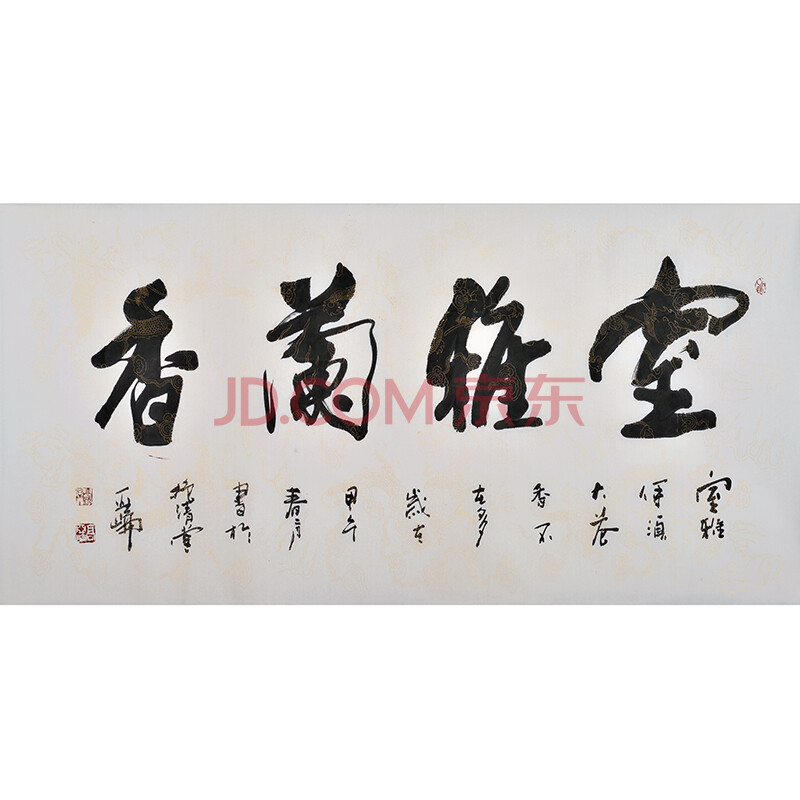 室雅蘭香
室雅
何須
大花
香不
在多
歲在
甲午
春月
書於
清堂
JD.COM 京东